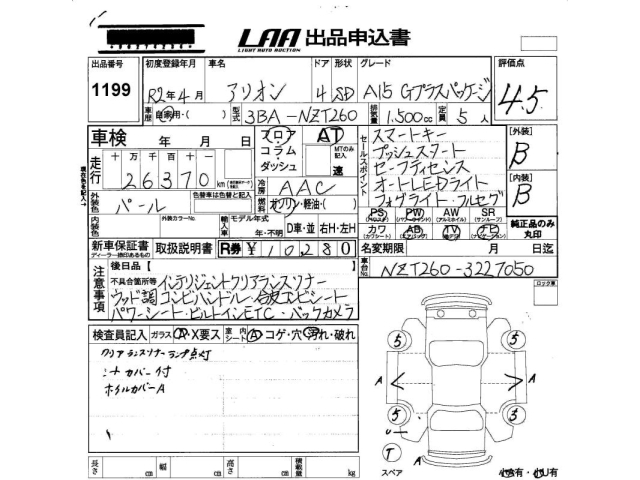 LAA 出品申込書
LIGHT AUTO AUCTION
出品番号 初度登録年月 車名 ドア 形状 グレード 評価点
1199 R2年4月 アリオン 4 SD A15 Gプラスパッケージ 4.5
車歴 自家用・( ) 型式 3BA-NZT260 排気量 1.500cc 定員 5人
車検 年 月 日
フロア コラム ダッシュ
AT
MTのみ記入 速
セールスポイント
スマートキー
プッシュスタート
セーフティセンス
オートLEDライト
フォグライト フルセグ
[外装] B
[内装] B
走行 十万千百十 26370 km
冷房 AAC
外装色 パール
色替車は色替と記入
燃料 ガソリン・軽油・( )
PS PW AW SR
(パワーウインド) (アルミホイル) (サンルーフ)
カワ AB TV ナビ
純正品のみ丸印
外装カラーNo.
輸入車 モデル年式 年・不明 D車・並 右H・左H
新車保証書 取扱説明書 R券 ¥10280
ディーラー捺印あるもの
名変期限 月 日迄
車台No. NZT260-3227050
注意事項
後日品 [
不具合箇所等
インテリジェントクリアランスソナー
ウッド調コンビハンドル・合皮コンビシート
パワーシート・ビルトインETC・バックカメラ
ロック車
検査員記入 ガラス A・X要ス 室内 シート A コゲ・穴・汚れ・破れ
クリアランスソナーランプ点灯
シートカバー付
ホイルカバーA
5 5
A A
5 5
A
T
スペア
長さ cm 幅 cm 高さ cm 積載量 kg